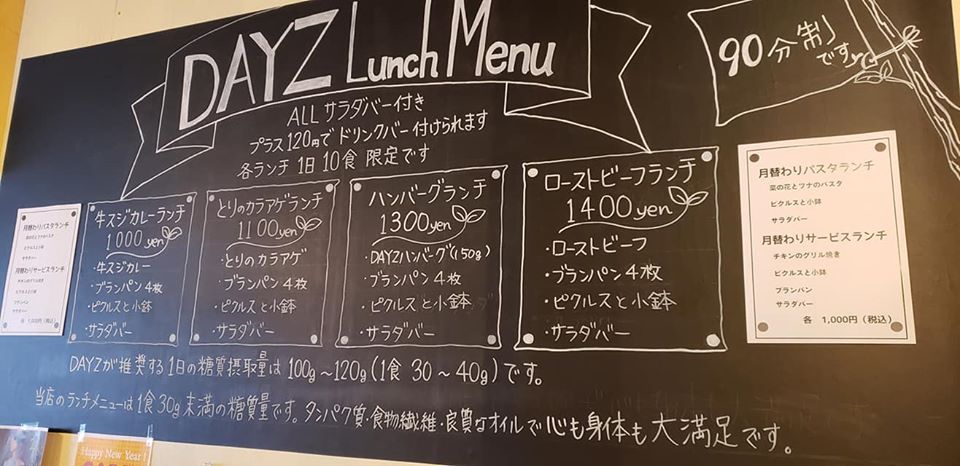 DAYZ Lunch Menu
90分制
です
ALL サラダバー付き
プラス120円でドリンクバー付けられます
各ランチ 1日10食 限定です
月替わりパスタランチ
菜の花とツナのパスタ
ピクルスと小鉢
サラダバー
月替わりサービスランチ
チキンのグリル焼き
ピクルスと小鉢
ブランパン
サラダバー
各 1,000円(税込)
牛スジカレーランチ
1000yen
・牛スジカレー
・ブランパン 4枚
・ピクルスと小鉢
・サラダバー
とりのカラアゲランチ
1100yen
・とりのカラアゲ
・ブランパン 4枚
・ピクルスと小鉢
・サラダバー
ハンバーグランチ
1300yen
・DAYZハンバーグ(150g)
・ブランパン 4枚
・ピクルスと小鉢
・サラダバー
ローストビーフランチ
1400yen
・ローストビーフ
・ブランパン 4枚
・ピクルスと小鉢
・サラダバー
月替わりパスタランチ
菜の花とツナのパスタ
ピクルスと小鉢
サラダバー
月替わりサービスランチ
チキンのグリル焼き
ピクルスと小鉢
ブランパン
サラダバー
各 1,000円(税込)
DAYZが推奨する1日の糖質摂取量は100g~120g(1食 30~40g)です。
当店のランチメニューは1食30g未満の糖質量です。タンパク質・食物繊維・良質なオイルで心も身体も大満足です。
Happy New Year!